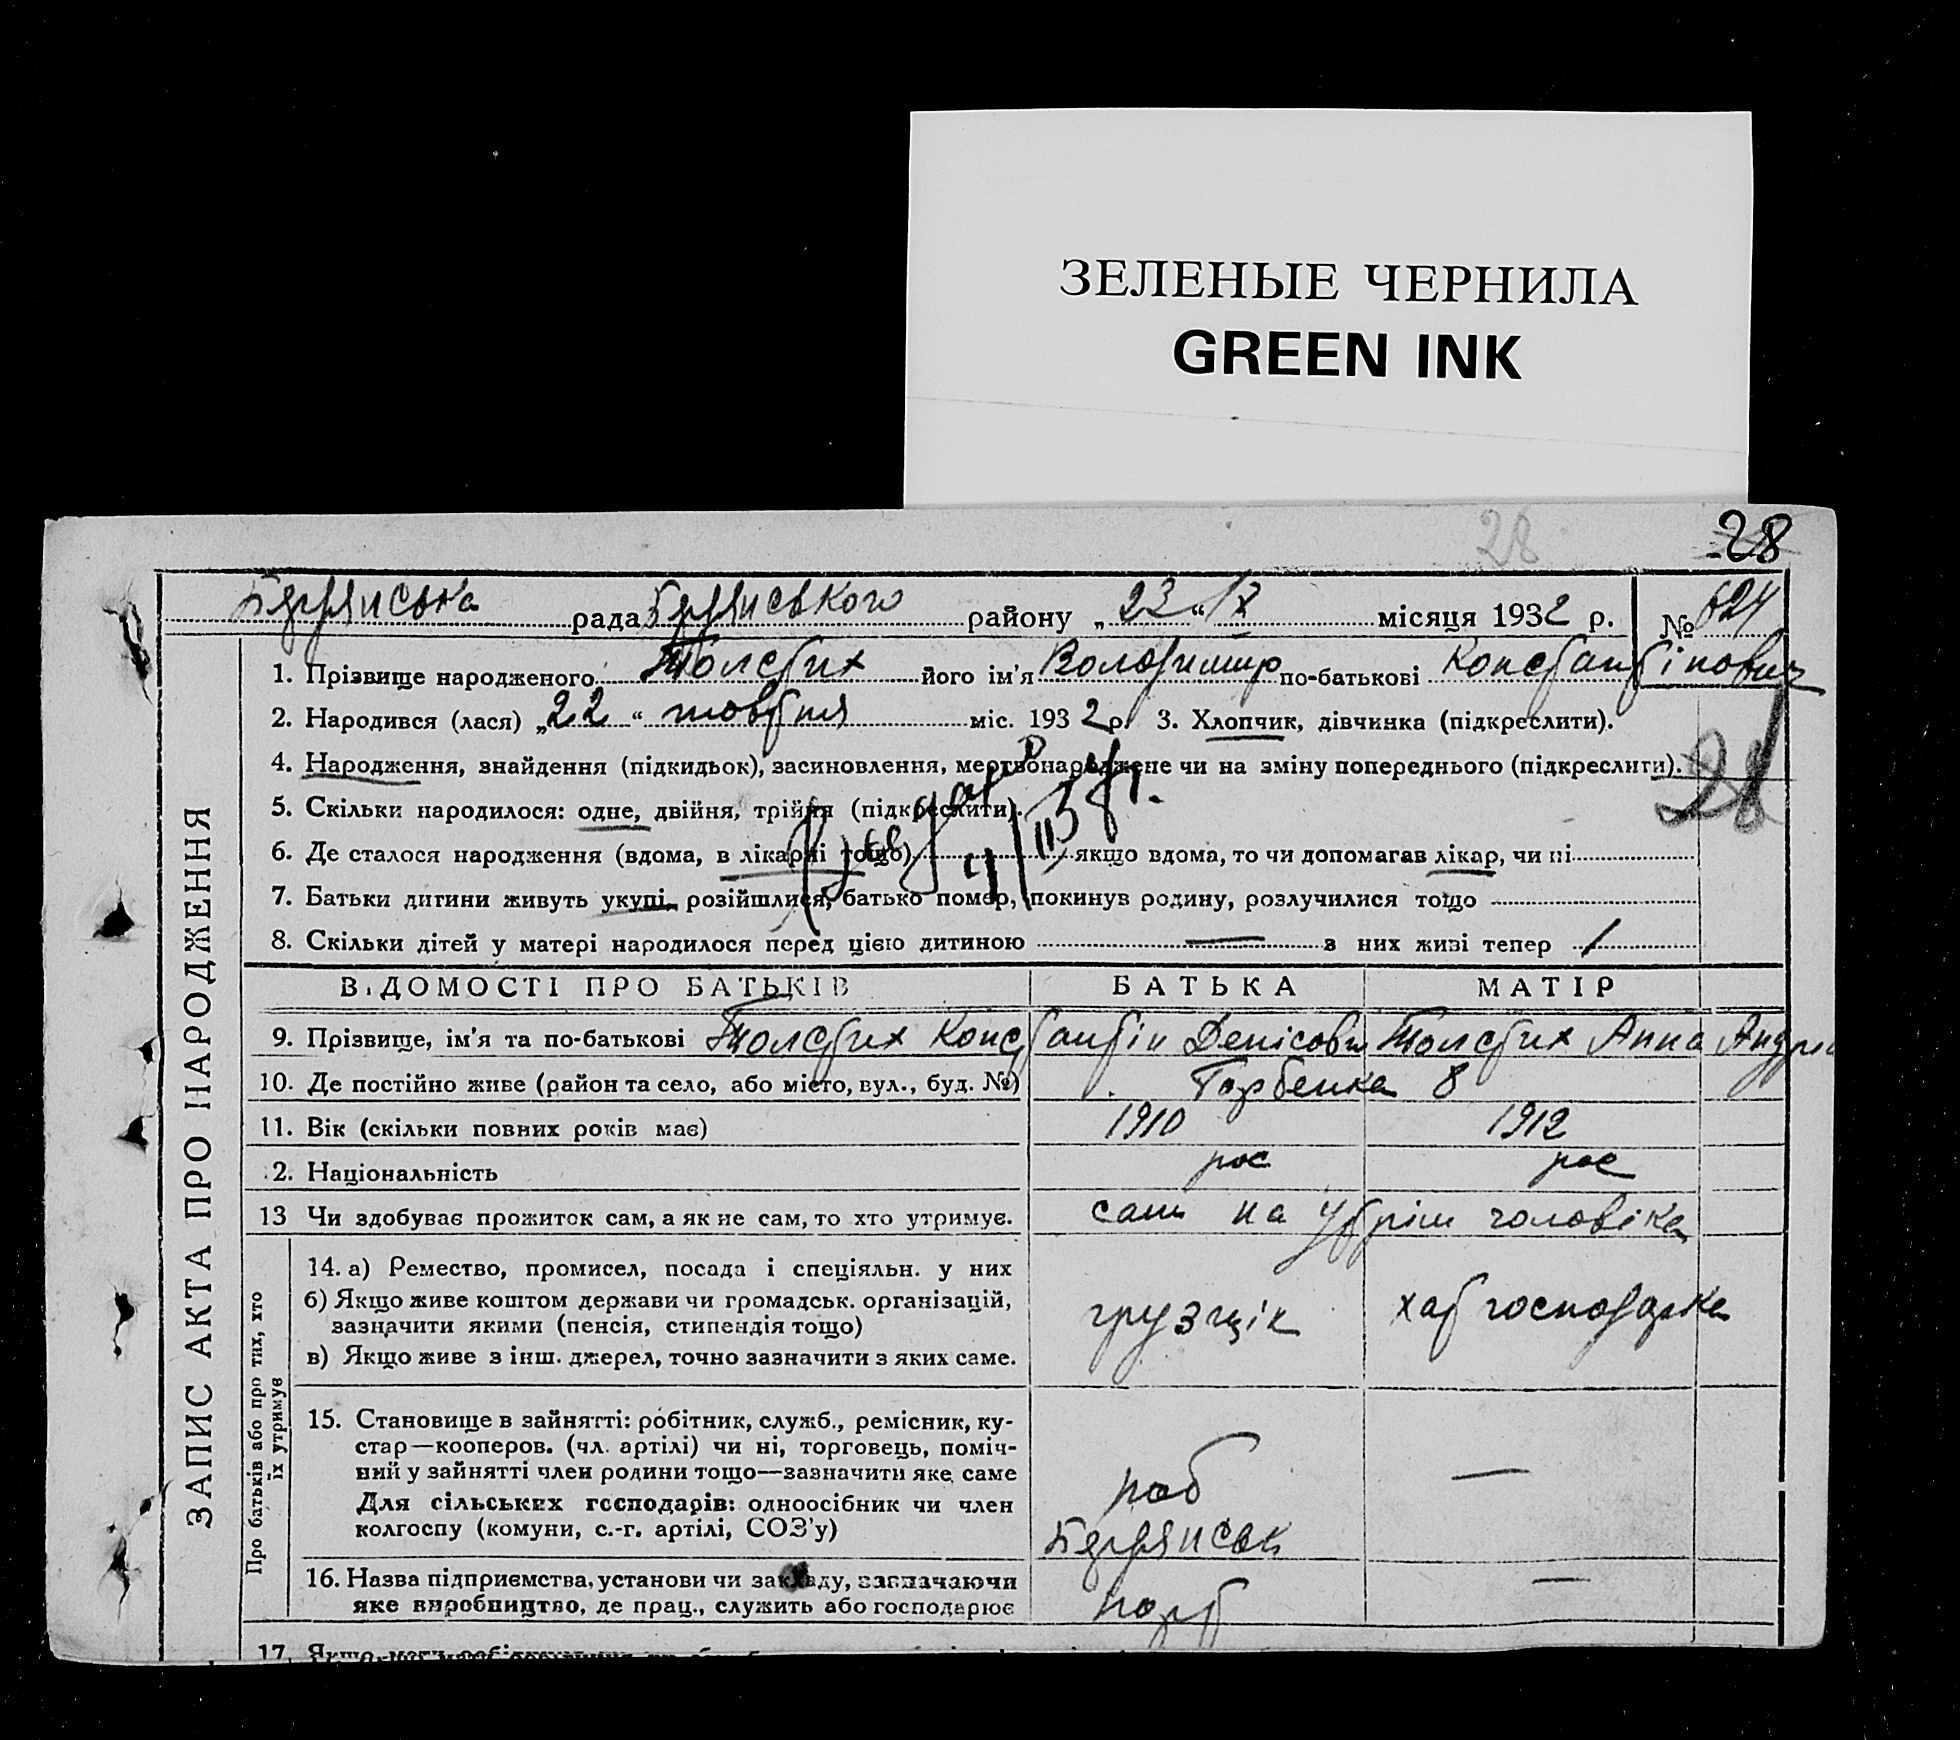 ЗЕЛЕНЫЕ ЧЕРНИЛА
GREEN INK
28
28
Бердянська рада Бердянського району „23“ IX місяця 1932 р. № 624
ЗАПИС АКТА ПРО НАРОДЖЕННЯ
1. Прізвище народженого Толстих його ім'я Володимир по-батькові Констянтінович
2. Народився (лася) „22“ жовтня міс. 1932 р. 3. Хлопчик, дівчинка (підкреслити).
4. Народження, знайдення (підкидьок), засиновлення, мертвонароджене чи на зміну попереднього (підкреслити).
28
5. Скільки народилося: одне, двійня, трійня (підкреслити).
6. Де сталося народження (вдома, в лікарні тощо) якщо вдома, то чи допомагав лікар, чи ні
7. Батьки дитини живуть укупі, розійшлися, батько помер, покинув родину, розлучилися тощо
8. Скільки дітей у матері народилося перед цією дитиною — з них живі тепер 1
ВІДОМОСТІ ПРО БАТЬКІВ БАТЬКА МАТІР
9. Прізвище, ім'я та по-батькові Толстих Константін Денісович Толстих Анна
10. Де постійно живе (район та село, або місто, вул., буд. №) 8
11. Вік (скільки повних років має) 1910 1912
2. Національність рос рос
13 Чи здобуває прожиток сам, а як не сам, то хто утримує. сам на утрім чоловіка
Про батьків або про тих, хто їх утримує
14. а) Ремество, промисел, посада і спеціяльн. у них
б) Якщо живе коштом держави чи громадськ. організацій,
зазначити якими (пенсія, стипендія тощо)
грузщік хат господарка
в) Якщо живе з інш. джерел, точно зазначити з яких саме.
15. Становище в зайнятті: робітник, служб., ремісник, ку-
стар—кооперов. (чл. артілі) чи ні, торговець, поміч-
ний у зайнятті член родини тощо—зазначити яке саме
роб —
Для сільських господарів: одноосібник чи член
колгоспу (комуни, с.-г. артілі, СОЗ'у)
Бердянськ
16. Назва підприємства, установи чи закладу, зазначаючи
яке виробництво, де прац., служить або господарює
порт —
17.